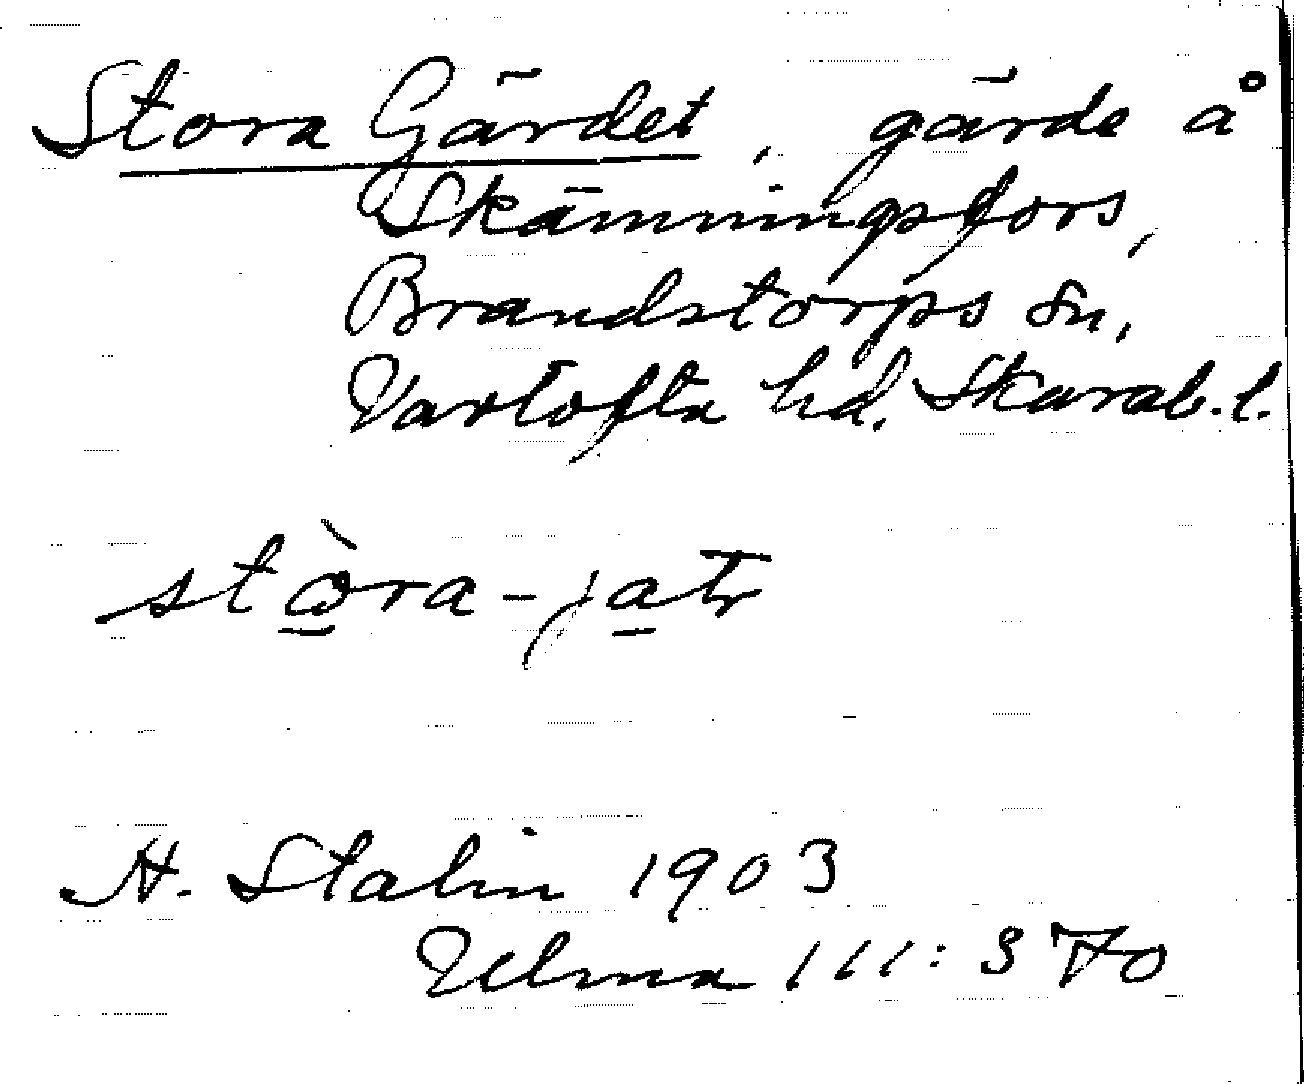 Stora Gärdet, gärde å
Skämningsfors,
Brandstorps sn,
Vartofta hd. Skarab. l.
H. Stalin 1903
Ulma 111:370